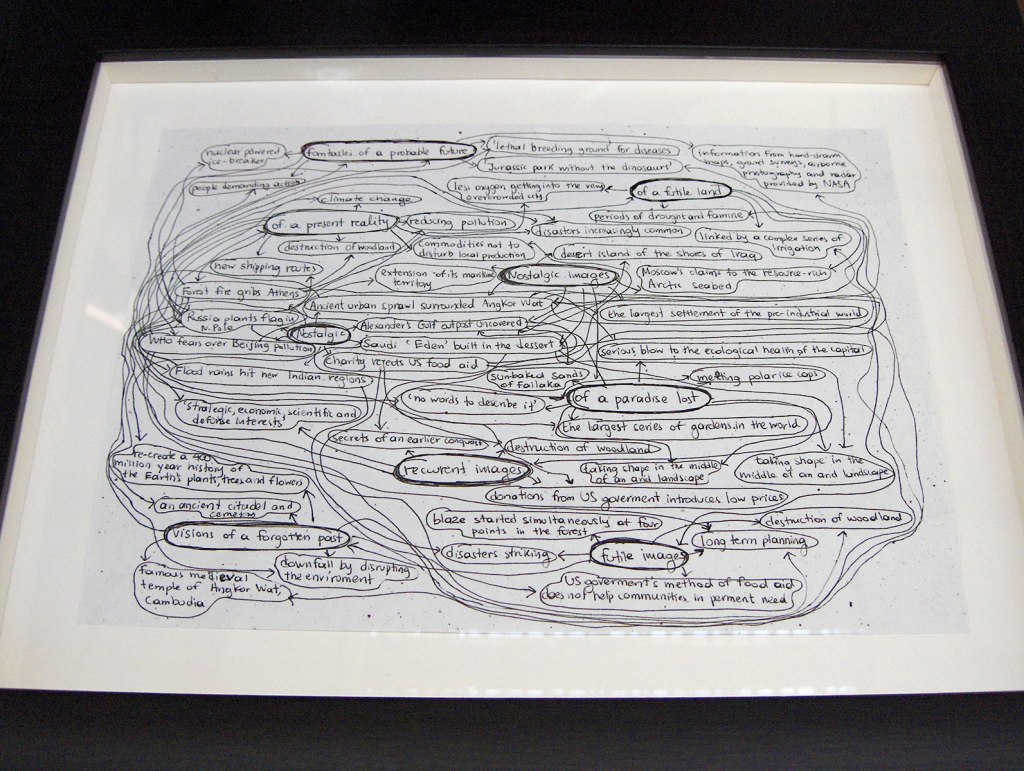 nuclear powered
ice-breaker
fantasies of a probable future
'lethal breeding ground' for diseases
'Jurassic park without the dinosaurs'
information from hand-drawn
maps, ground surveys, airborne
photography and radar
provided by NASA
people demanding action
climate change
less oxygen getting into the very
overcrowded city
of a futile land
of a present reality
reducing pollution
periods of drought and famine
disasters increasingly common
linked by a complex series of
irrigation
destruction of woodland
Commodities not to
disturb local production
desert island of the shores of Iraq
new shipping routes
extension of its maritime
territory
Nostalgic images
Moscow's claims to the resource-rich
Arctic seabed
Forest fire gribs Athens
Ancient urban sprawl surrounded Angkor Wat
Russia plants flag in
N.Pole
Nostalgic
Alexander's Gulf outpost uncovered
the largest settlement of the pre-industrial world
WHO fears over Beijing pollution
Saudi 'Eden' built in the dessert
serious blow to the ecological health of the capital
Charity rejects US food aid
Flood rains hit new Indian regions
sunbaked sands
of Failaka
melting polar ice caps
'no words to describe it'
of a paradise lost
'strategic, economic, scientific and
defense interests'
the largest series of gardens in the world
Secrets of an earlier conquest
destruction of woodland
re-create a 400
million year history of
the Earth's plants, trees, and flowers
recurent images
taking shape in the middle
of an arid landscape
taking shape in the
middle of an arid landscape
donations from US goverment introduces low prices
an ancient citadel and
cemetry
blaze started simultaneously at four
points in the forest
destruction of woodland
visions of a forgotten past
disasters striking
futile images
long term planning
downfall by disrupting
the enviroment
famous medieval
temple of Angkor Wat,
Cambodia
US goverment's method of food aid
does not help communities in perment need